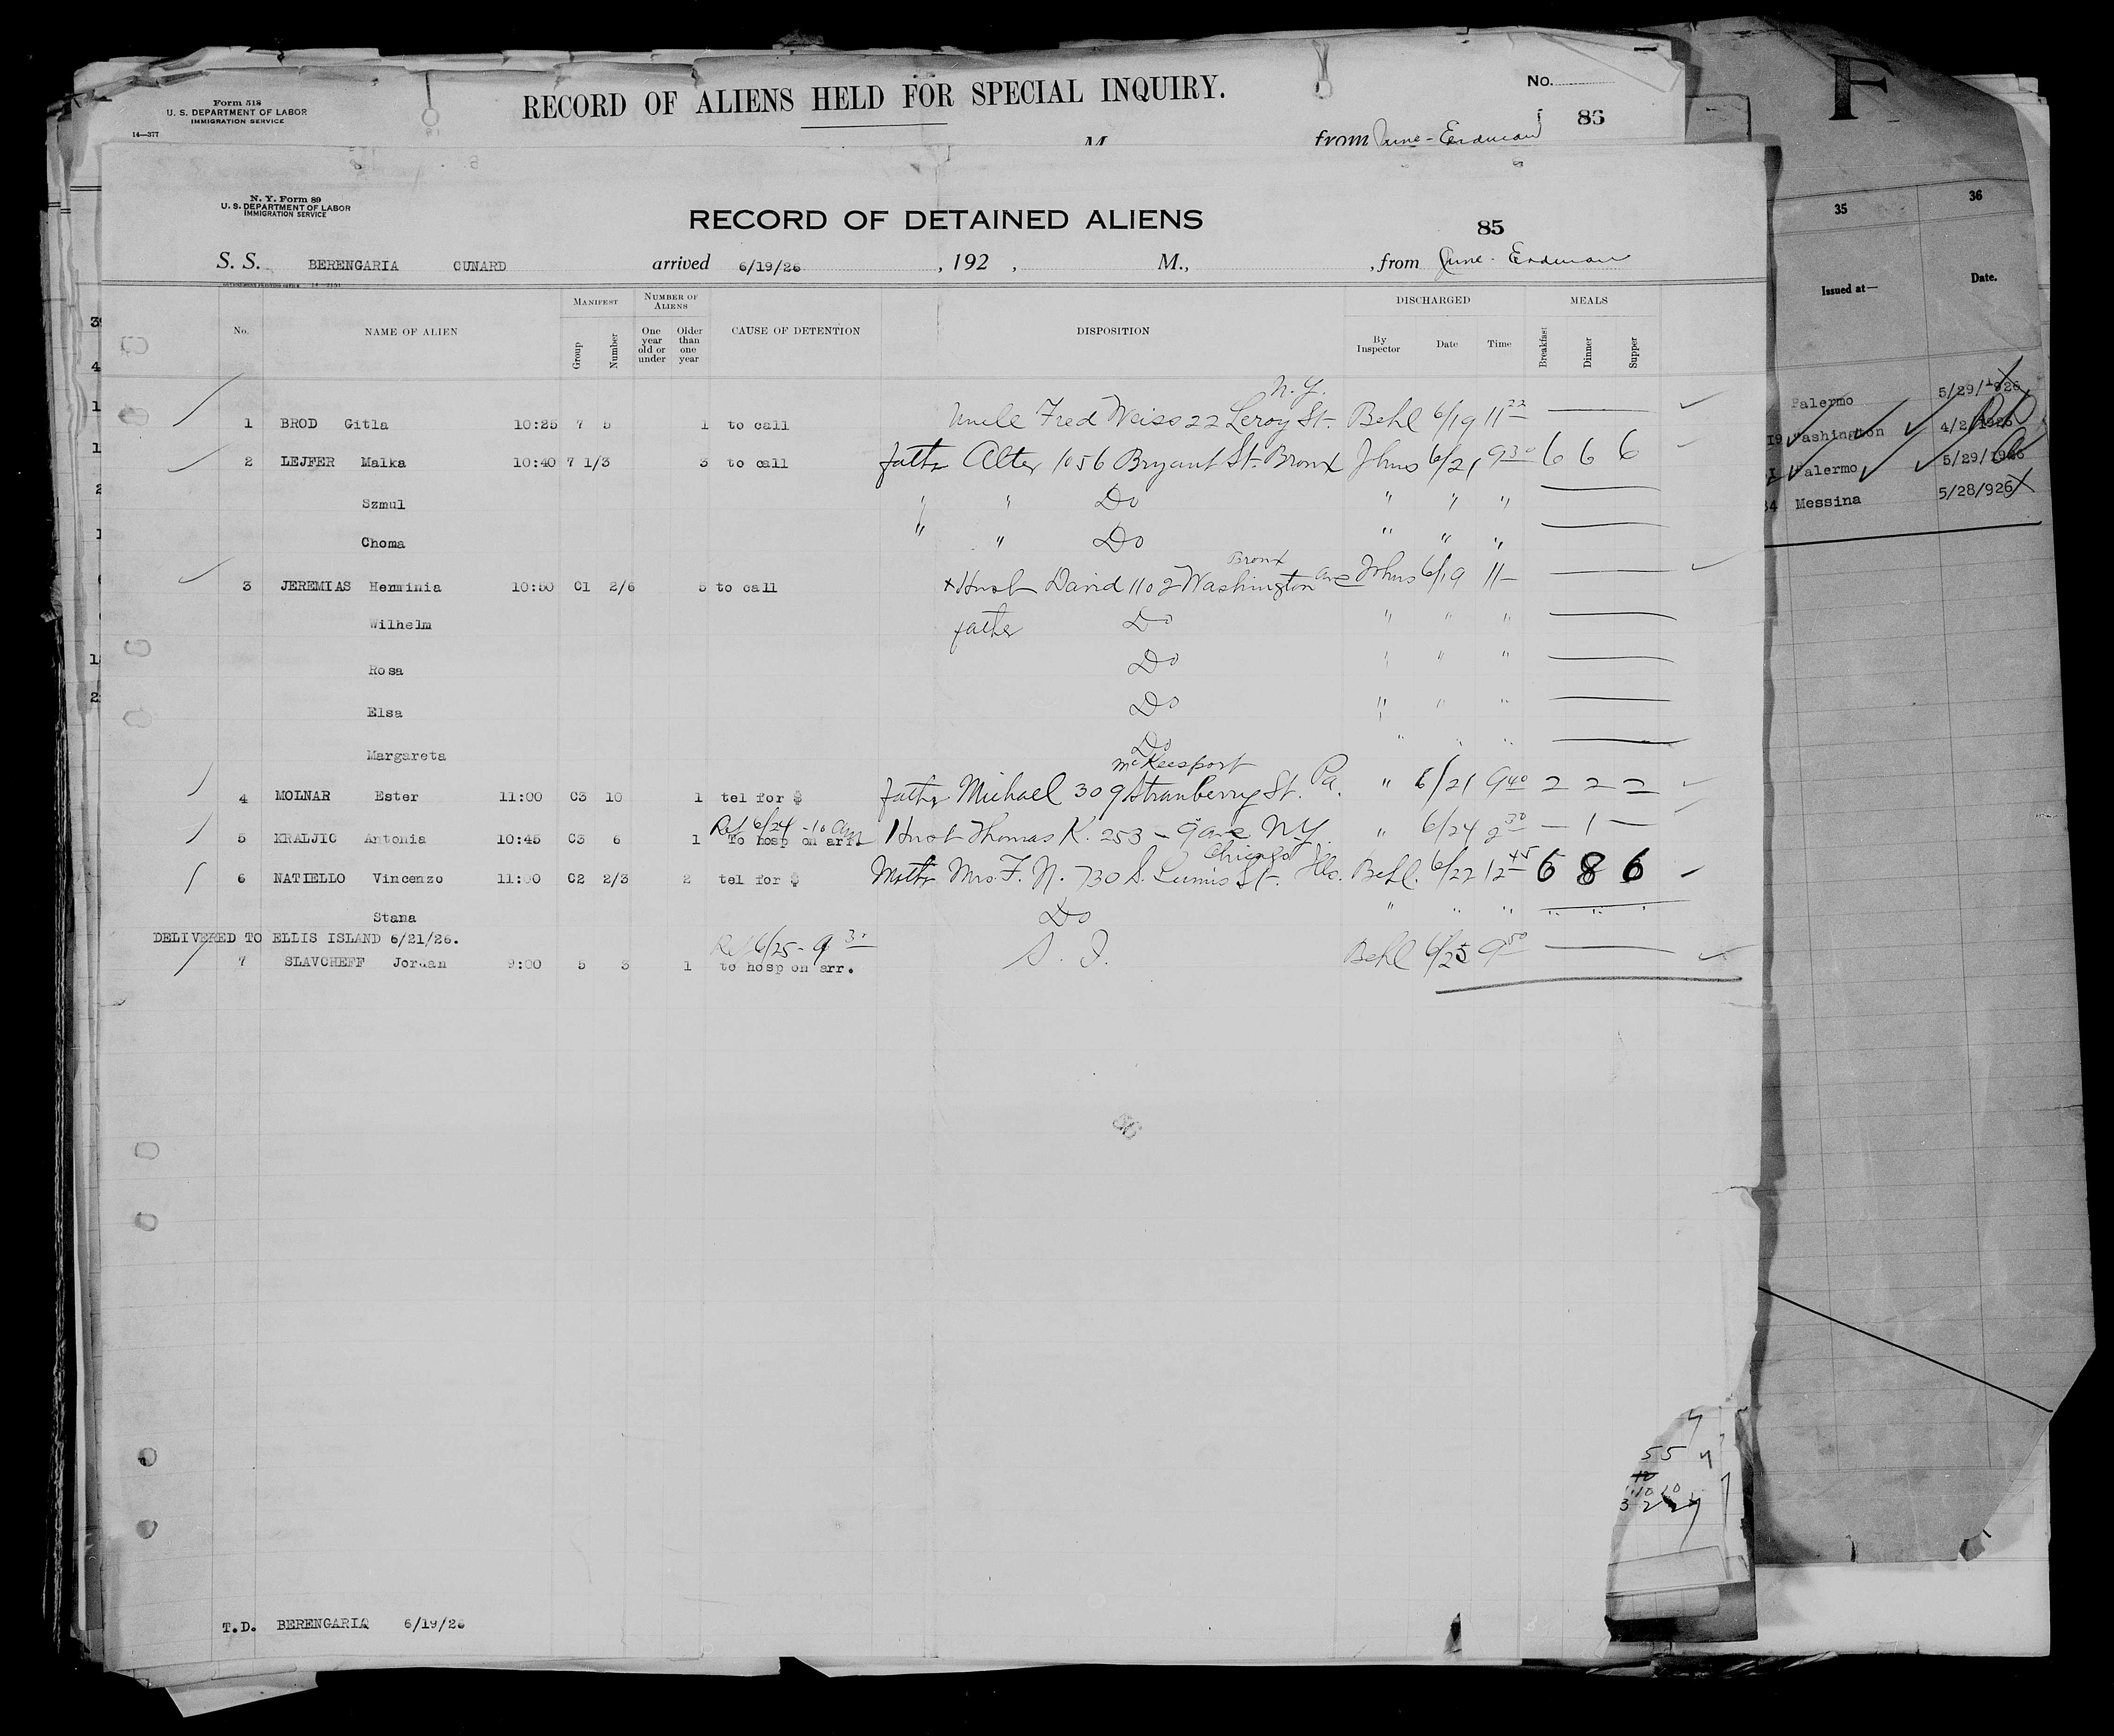 Form 518
U. S. DEPARTMENT OF LABOR
IMMIGRATION SERVICE
14—377
RECORD OF ALIENS HELD FOR SPECIAL INQUIRY.
No.
86
M
from June - Erdman
F
N. Y. Form 89
U. S. DEPARTMENT OF LABOR
IMMIGRATION SERVICE
RECORD OF DETAINED ALIENS
85
S. S. BERENGARIA CUNARD arrived 6/19/26 , 192 , M., , from June - Erdman
No. NAME OF ALIEN MANIFEST Group Number NUMBER OF ALIENS One year old or under Older than one year CAUSE OF DETENTION DISPOSITION DISCHARGED By Inspector Date Time MEALS Breakfast Dinner Supper
N.Y.
1 BROD Gitla 10:25 7 5 1 to call Uncle Fred Weiss 22 Leroy St. Behl 6/19 11 22
2 LEJFER Malka 10:40 7 1/3 3 to call father Alter 1056 Bryant St. Bronx Johns 6/21 9 30 6 6 6
Szmul " " Do " " "
Choma " " Do " " "
Bronx
3 JEREMIAS Herminia 10:50 C1 2/6 5 to call x Husb David 1102 Washington ave Johns 6/19 11 —
Wilhelm father Do " " "
Rosa Do " " "
Elsa Do " " "
Margareta Do " " "
McKeesport
4 MOLNAR Ester 11:00 C3 10 1 tel for $ father Michael 309 Stranberry St. Pa. " 6/21 9 40 2 2 2
Rel 6/24 - 10 am
5 KRALJIC Antonia 10:45 C3 6 1 To hosp on arr. Husb Thomas K. 253 - 9 ave NY. " 6/24 2 30 — 1 —
Chicago
6 NATIELLO Vincenzo 11:00 C2 2/3 2 tel for $ Moth Mrs. F. N. 730 S. Lumis St. Ills. Behl. 6/22 12 45 6 8 6
Stana Do " " " " " "
DELIVERED TO ELLIS ISLAND 6/21/26.
Rel 6/25 - 9 30
7 SLAVCHEFF Jordan 9:00 5 3 1 to hosp on arr. S. I. Behl 6/25 9 50
T.D. BERENGARIA 6/19/26
35 36
Issued at— Date.
Palermo 5/29/1926
Washington 4/2/1926
Palermo 5/29/1926
Messina 5/28/926
55